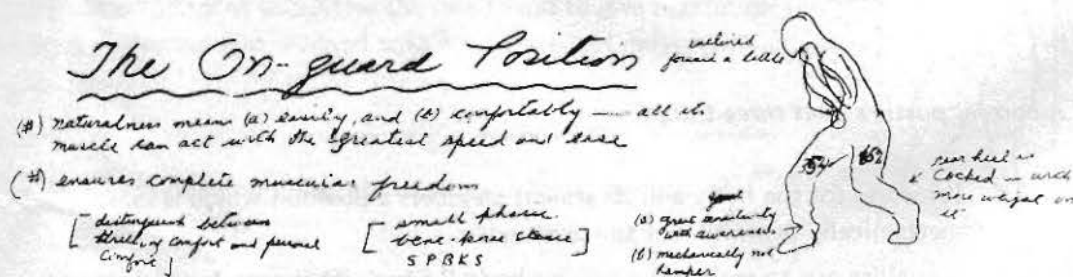 The On-guard Position
inclined
forward a little
(#) naturalness means (a) easily, and (b) comfortably — all
muscle can act with the greatest speed and ease
(#) ensures complete muscular freedom
[ - distinguish between
comfort and personal
]
[ - small phasic
bent-knee stance ]
S P B K S
(a) great sensitivity
with awareness
(b) mechanically not
hamper
35%
65%
rear heel is
cocked — with
more weight on
it